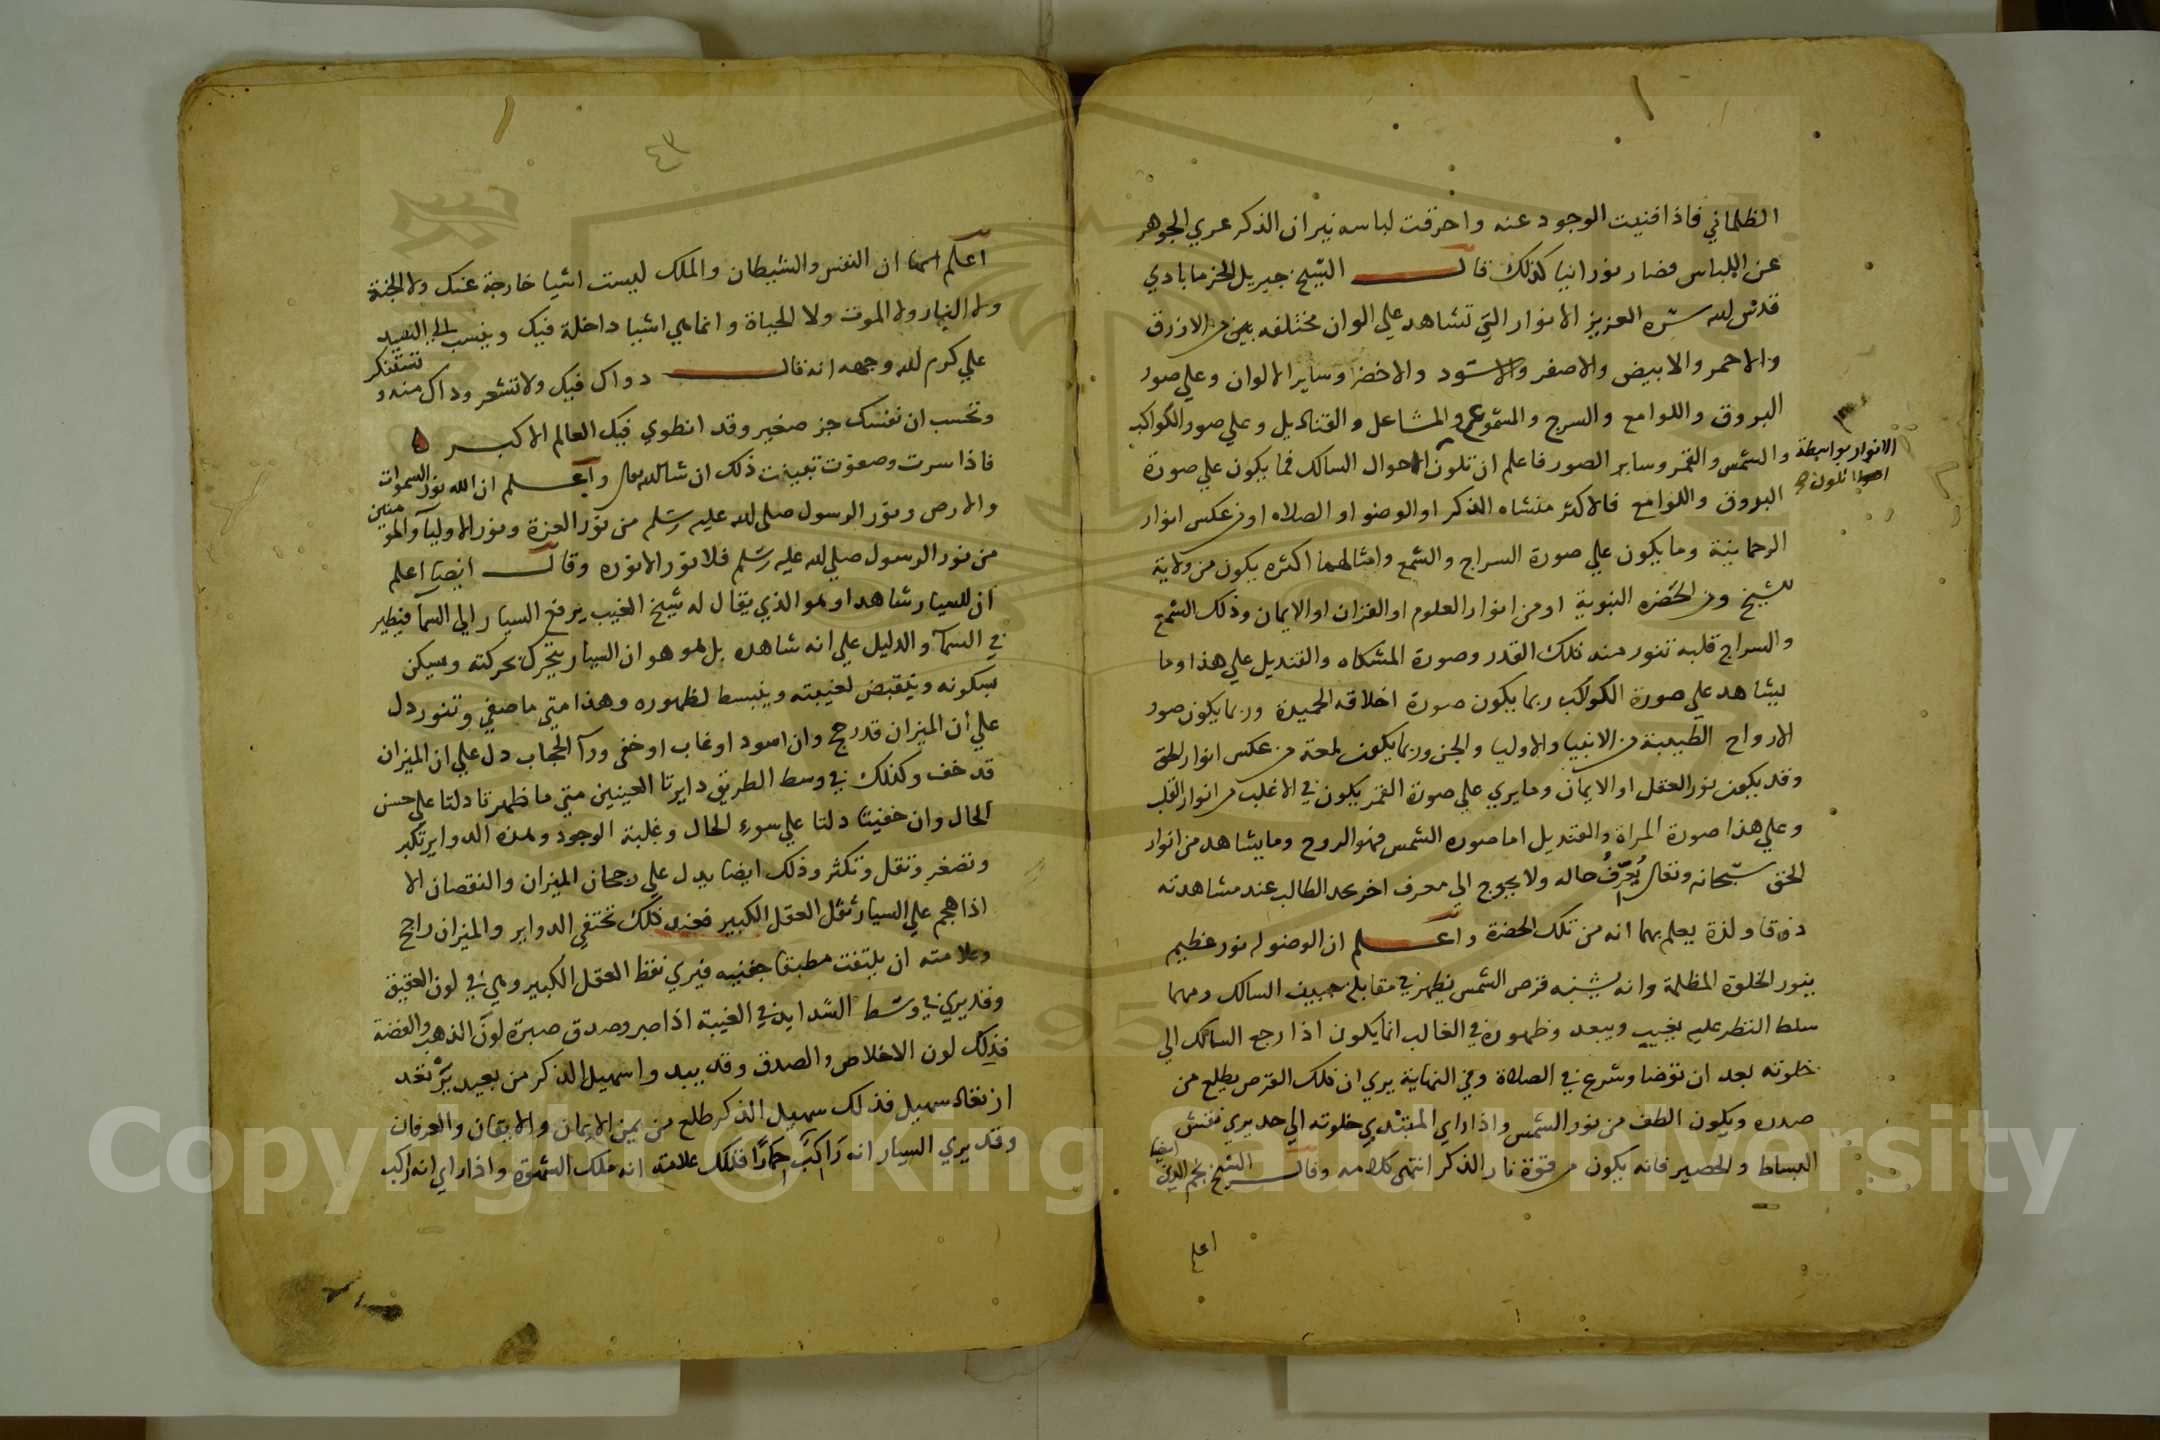 الظلماني فاذا افنيت الوجود عنه واحرقت لباسه نيران الذكر عري الجوهر
عن اللباس فصار نورانيا كذلك قال الشيخ جبريل الخرمابادي
قدس الله سره العزيز الانوار التي تشاهد علي الوان مختلفه بعين من الازرق
والاحمر والابيض والاصفر والاسود والاخضر وساير الالوان وعلي صور
البروق واللوامع والسرج والشموع والمشاعل والقناديل وعلي صور الكواكب
والشمس والقمر وساير الصور فاعلم ان تلون احوال السالك فما يكون علي صورة
الانوار بواسطة
تلون
البروق واللوامع فالاكثر منشاه الذكر او الوضو او الصلاه او من عكس انوار
الرحمانية وما يكون علي صورة السراج والشمع وامثالهما اكثره يكون من ولاية
الشيخ ومن الحضره النبوية او من انوار العلوم او القران او الايمان وذلك الشمع
والسراج قلبه تنور منه تلك القدر وصورة المشكاه والقنديل علي هذا وما
يشاهد علي صورة الكواكب ربما يكون صورة اخلاقه الحميدة وربما يكون صور
الارواح الطيبة من الانبيا والاوليا والجن وربما يكون لمحة من عكس انوار الحق
وقد يكون نور العقل او الايمان وما يري علي صورة القمر يكون في الاغلب من انوار القلب
وعلي هذا صورة المراة والقنديل اما صوره الشمس فهو الروح وما يشاهد من انوار
الحق سبحانه وتعالى يُعرّفُ حاله ولا يحوج الي معرف اخر يجد الطالب عند مشاهدته
ذوقا ولذة يعلم بهما انه من تلك الحضرة واعلم ان الوضو له نور عظيم
ينور الخلوة المظلمة وانه يشبه قرص الشمس يظهر في مقابلة جبين السالك ومهما
سلط النظر عليه يغيب ويبعد وظهوره في الغالب انما يكون اذا رجع السالك الي
خلوته بعد ان توضا وشرع في الصلاة وفي النهاية يري ان ذلك القرص يطلع من
صدره ويكون الطف من نور الشمس واذا راي المبتدي خلوته الي حد يري نقش
البساط والحصير فانه يكون من قوة نار الذكر انتهى كلامه وقال الشيخ نجم الدين ايضا
اعلم
٤٣
اعلم ان النفس والشيطان والملك ليست اشيا خارجة عنك ولا الجنة
ولا النار ولا الموت ولا الحياة وانما هي اشيا داخلة فيك وينسب الي السيد
علي كرم الله وجهه انه قال دواك فيك ولا تشعر وداك منه و تستنكر
وتحسب ان نفسك جز صغير وقد انطوي فيك العالم الاكبر
فاذا سرت وصفوت تبينت ذلك ان شا الله تعالى واعلم ان الله نور السموات
والارض ونور الرسول صلى الله عليه وسلم من نور العزة ونور الاوليا والمومنين
من نور الرسول صلى الله عليه وسلم فلا نور الا نوره وقال ايضا اعلم
ان للسيار شاهدا وهو الذي يقال له شيخ الغيب يرفع السيار الي السما فيطير
في السما والدليل علي انه شاهده بل هو هو ان السيار يتحرك بحركته ويسكن
بسكونه وينقبض لغيبته وينبسط لظهوره وهذا متي ما صفي وتنور دل
علي ان الميزان قد رجح وان اسود او غاب او خفي ورآ الحجاب دل علي ان الميزان
قد خف وكذلك في وسط الطريق دايرتا العينين متي ما ظهرتا دلتا علي حسن
الحال وان خفيتا دلتا علي سوء الحال وغلبة الوجود ولهذه الدواير تكبر
وتصغر وتقل وتكثر وذلك ايضا يدل علي رجحان الميزان والنقصان الا
اذا هجم علي السيار ثقل العقل الكبير فعند ذلك تختفي الدواير والميزان راجح
وعلامته ان يلتفت مطبقا جفنيه فيري نقط العقل الكبير وهي في لون العقيق
وقد يري في وسط الشدايد في الغيبة اذا صبر وصدق صبره لون الذهب والفضة
فذلك لون الاخلاص والصدق وقد يبدوا سهيل الذكر من بعيد
فذلك سهيل الذكر طلع من يمين الايمان والايقان والعرفان
وقد يري السيار انه راكبٌ حمارًا فتلك علامة انه ملك الشهوة واذا راي انه راكب